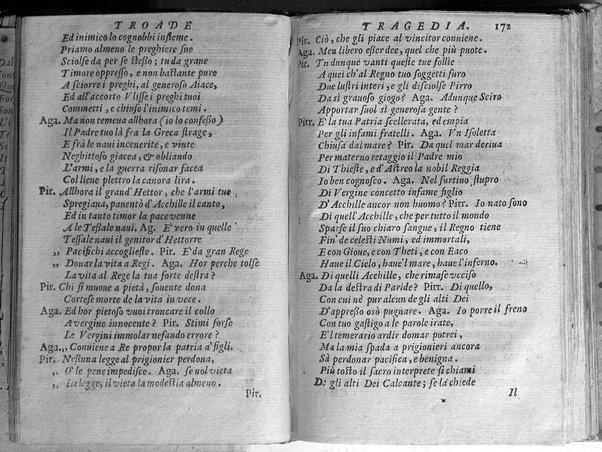 TROADE
Ed inimico lo cognobbi insieme.
Priamo almeno le preghiere sue
Sciolse da per se stesso; tu da graue
Timore oppresso, e non bastante pure
A sciorre i preghi, al generoso Aiace,
Ed all'accorto Vlisse i preghi tuoi
Commetti, e chiuso l'inimico temi.
Aga. Ma non temeua allhora (io lo confesso)
Il Padre tuo là fra la Greca strage,
E frà le naui incenerite, e vinte
Neghittoso giacea, & obliando
L'armi, e la guerra risonar facea
Col lieue plettro la canora lira.
Pir. Allhora il grand'Hettor, che l'armi tue
Spregiana, pauentò d'Acchille il canto,
Ed in tanto timor la pace venne
A le Tessale naui. Ag. E' vero in quelle
Tessale naui il genitor d'Hettorre
„ Pacifichi accogliesti. Pir. E' da gran Rege
„ Donar la vita a Regi. Aga. Hor perche tolse
La vita al Rege la tua forte destra?
Pir. Chi si muoue a pietà, souente dona
Cortese morte de la vita in vece.
Aga. Ed hor pietoso vuoi troncare il collo
A vergine innocente? Pir. Stimi forse
Le Vergini immolar nefando errore?
Aga. „ Conuiene a Re propor la patria a' figli.
Pir. Nessuna legge al prigionier perdona,
„ O' le pene impedisce. Aga. se nol vieta
„ La legge, il vieta la modestia almeno.
Pir.
TRAGEDIA. 172
Pir. Ciò, che gli piace al vincitor conuiene.
Aga. Men libero esser dee, quel che più puote.
Pir. Tu dunque vanti queste tue follie
A quei ch'al Regno tuo soggetti furo
Due lustri interi, e gli disciolse Pirro
Da sì grauoso giogo? Aga. Adunque Sciro
Apporar suol sì generosa gente?
Pirr. E' la tua Patria scellerata, ed empia
Per gli infami fratelli. Aga. Vn Isoletta
Chiusa dal mare? Pir. Da quel mar deriua
Per materno retaggio il Padre mio
Di Thieste, e d'Astreo la nobil Reggia
Io ben cognosco. Aga. Nel furtiuo stupro
Di Vergine concetto infame figlio
D'Acchille ancor non huomo? Pirr. Io nato sono
Di quell'Acchille, che per tutto il mondo
Sparse il suo chiaro sangue, il Regno tiene
Fin' de celesti Numi, ed immortali,
E con Gioue, e con Theti, e con Eaco
Haue il Cielo, haue l'mare, haue l'inferno.
Aga. Di quelli Acchille, che rimase vcciso
Da la destra di Paride? Pirr. Di quello,
Con cui nè pur alcun de gli alti Dei
D'appresso osò pugnare. Aga. Io porre il freno
Con tuo gastigo a le parole irate,
E'l temerario ardir domar potrei,
Ma la mia spada a prigionieri ancora
Sà perdonar pacifica, e benigna.
Più tosto il sacro interprete si chiami
De gli alti Dei Calcante; se la chiede
Il